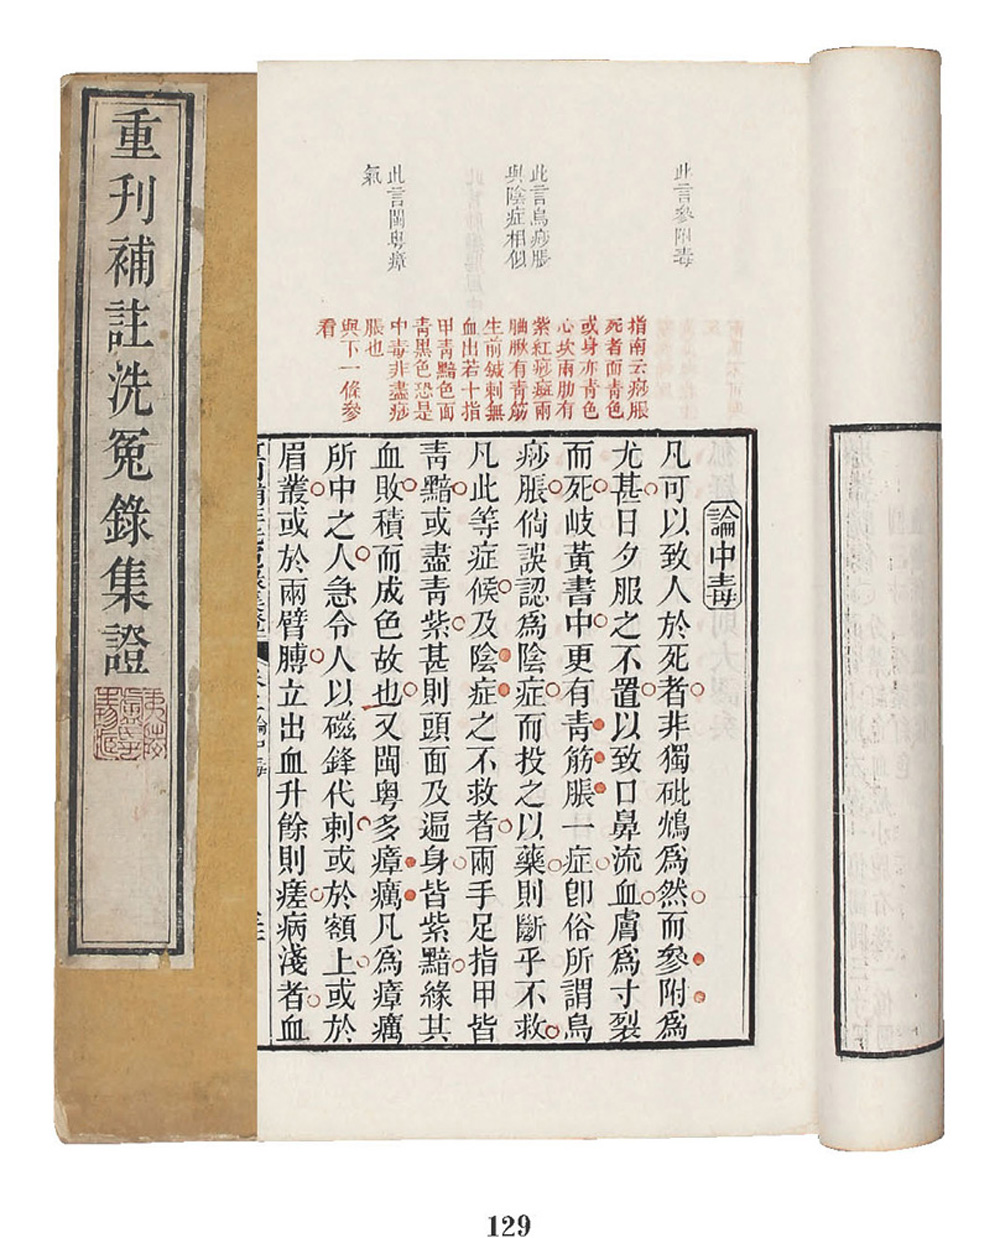 重刊補註洗冤錄集證
此言參附毒
此言烏痧脹
與陰症相似
此言閩粵瘴
氣
指南云痧脹
死者而青色
或身亦青色
心坎兩肋有
紫紅痧斑兩
膕瞅有青筋
生前鍼刺無
血出若十指
甲青黯色面
青黑色恐是
中毒非盡痧
脹也
與下一條參
看
論中毒
凡可以致人於死者非獨砒鴆爲然而參附爲
尤甚日夕服之不置以致口鼻流血膚爲寸裂
而死岐黃書中更有青筋脹一症卽俗所謂烏
痧脹倘誤認爲陰症而投之以藥則斷乎不救
凡此等症候及陰症之不救者兩手足指甲皆
青黯或盡青紫甚則頭面及遍身皆紫黯緣其
血敗積而成色故也又閩粵多瘴癘凡爲瘴癘
所中之人急令人以磁鋒代刺或於額上或於
眉叢或於兩臂膊立出血升餘則瘥病淺者血
129